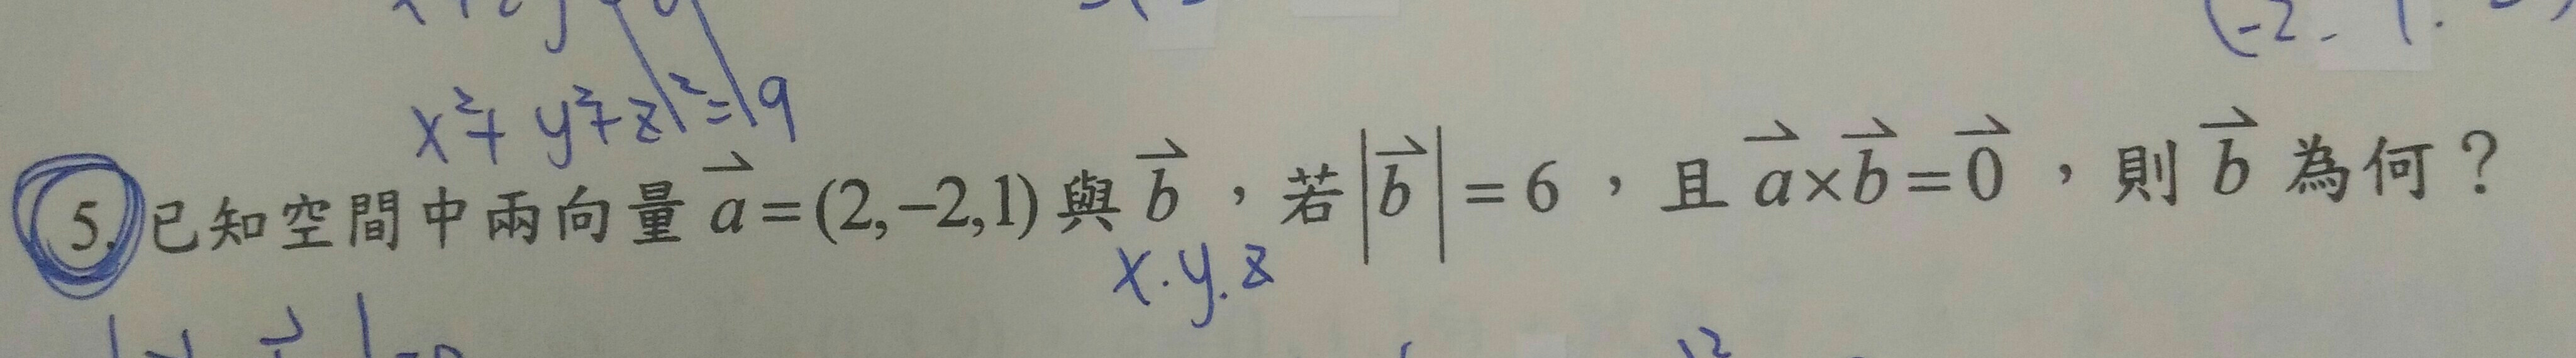 x²+y²+z²=9
5. 已知空間中兩向量 a⃗=(2,−2,1) 與 b⃗，若|b⃗|=6，且 a⃗×b⃗=0⃗，則 b⃗ 為何？
x.y.z